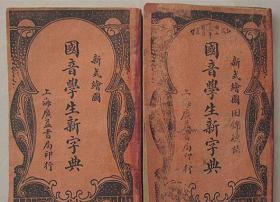 新式繪圖
國音學生新字典
上海廣益書局印行
新式繪圖
國音學生新字典
上海廣益書局印行